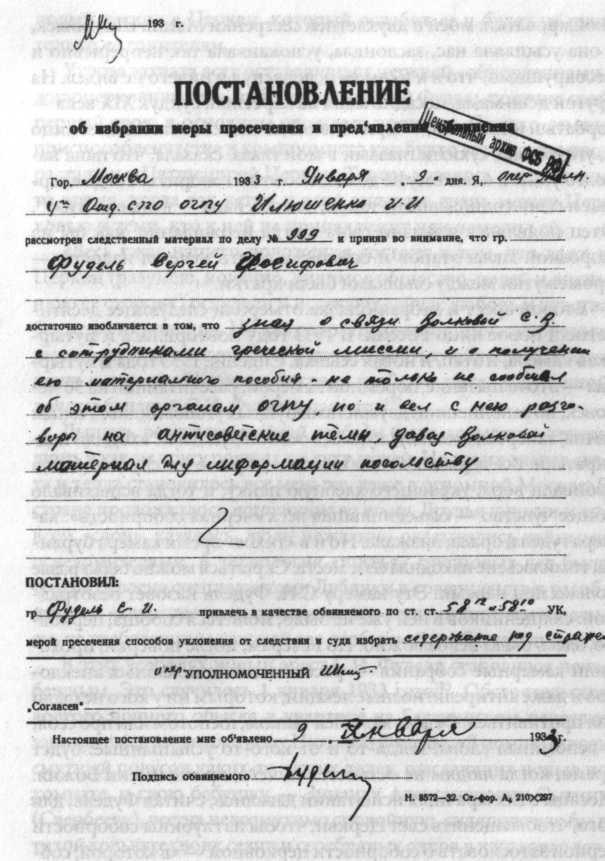 193 г.
ПОСТАНОВЛЕНИЕ
об избрании меры пресечения и пред'явлении обвинения
Центральный архив ФСБ РФ
Гор. Москва 1933 г. Января 9 дня. Я, опер Уполн.
Отд СПО ОГПУ Илюшенко И.И
рассмотрев следственный материал по делу № 999 и приняв во внимание, что гр.
Фудель Сергей Иосифович
достаточно изобличается в том, что зная о связи Волковой С.В.
с сотрудниками греческой миссии и о получении
ею материального пособия - не только не сообщил
об этом органам ОГПУ но и вел с нею разго-
воры на антисоветские темы, давая Волковой
материал для информации посольству
ПОСТАНОВИЛ:
гр. Фудель С. И. привлечь в качестве обвиняемого по ст. ст. 58 - 58¹⁰ УК,
мерой пресечения способов уклонения от следствия и суда избрать содержание под стражей
опер УПОЛНОМОЧЕННЫЙ
„Согласен“
Настоящее постановление мне об'явлено 9 Января 1933 г.
Подпись обвиняемого Фудель
Н. 8572—32. Ст. фор. А, 210×297